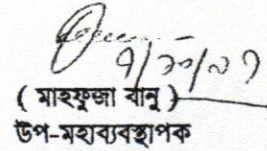 ৭/১০/০৭
( মাহফুজা বানু )
উপ-মহাব্যবস্থাপক